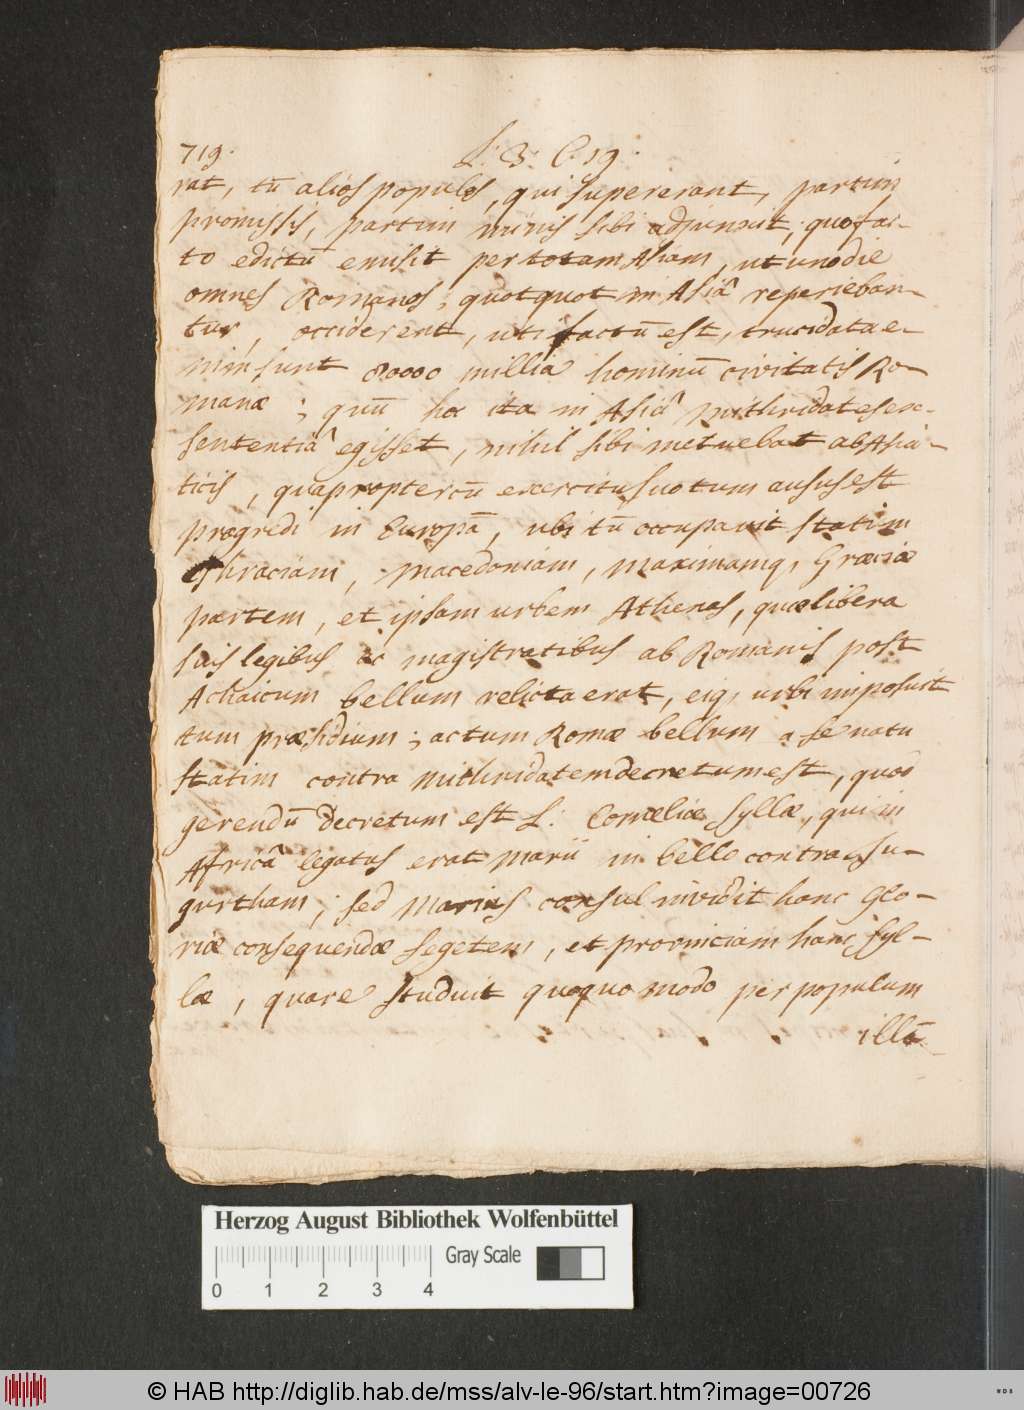 719.
L. 3. C. 19.
rat, tū alios populos, qui supererant, partim
promissis, partim minis sibi adjunxit; quo fac-
to edictū emisit per totam Asiam, ut uno die
omnes Romanos, quotquot in Asiâ reperieban-
tur, occiderent, uti factū est, trucidata e-
nim sunt 80000 millia hominū civitatis Ro-
manæ; quū hoc ita in Asiâ Mithridates ex-
sententiâ egisset, nihil sibi metuebat ab Asia-
ticis, quapropter cū exercitu suo tum ausus est
progredi in Europā, ubi tū occupavit statim
Thraciam, Macedoniam, maximamq, Græciæ
partem, et ipsam urbem Athenas, quæ libera
suis legibus ac magistratibus ab Romanis post
Achaicum bellum relicta erat, eiq, urbi imposuit
tum præsidium; actum Romæ bellum a senatu
statim contra Mithridatem decretum est, quod
gerendū decretum est L: Corneliæ Syllæ, qui in
Africâ legatus erat Marii in bello contra Ju-
gurtham; sed Marius consul invidit hanc glo-
riæ consequendæ segetem, et provinciam hanc Syl-
læ, quare studuit quoquo modo per populum
illā
Herzog August Bibliothek Wolfenbüttel
Gray Scale
0 1 2 3 4
© HAB http://diglib.hab.de/mss/alv-le-96/start.htm?image=00726